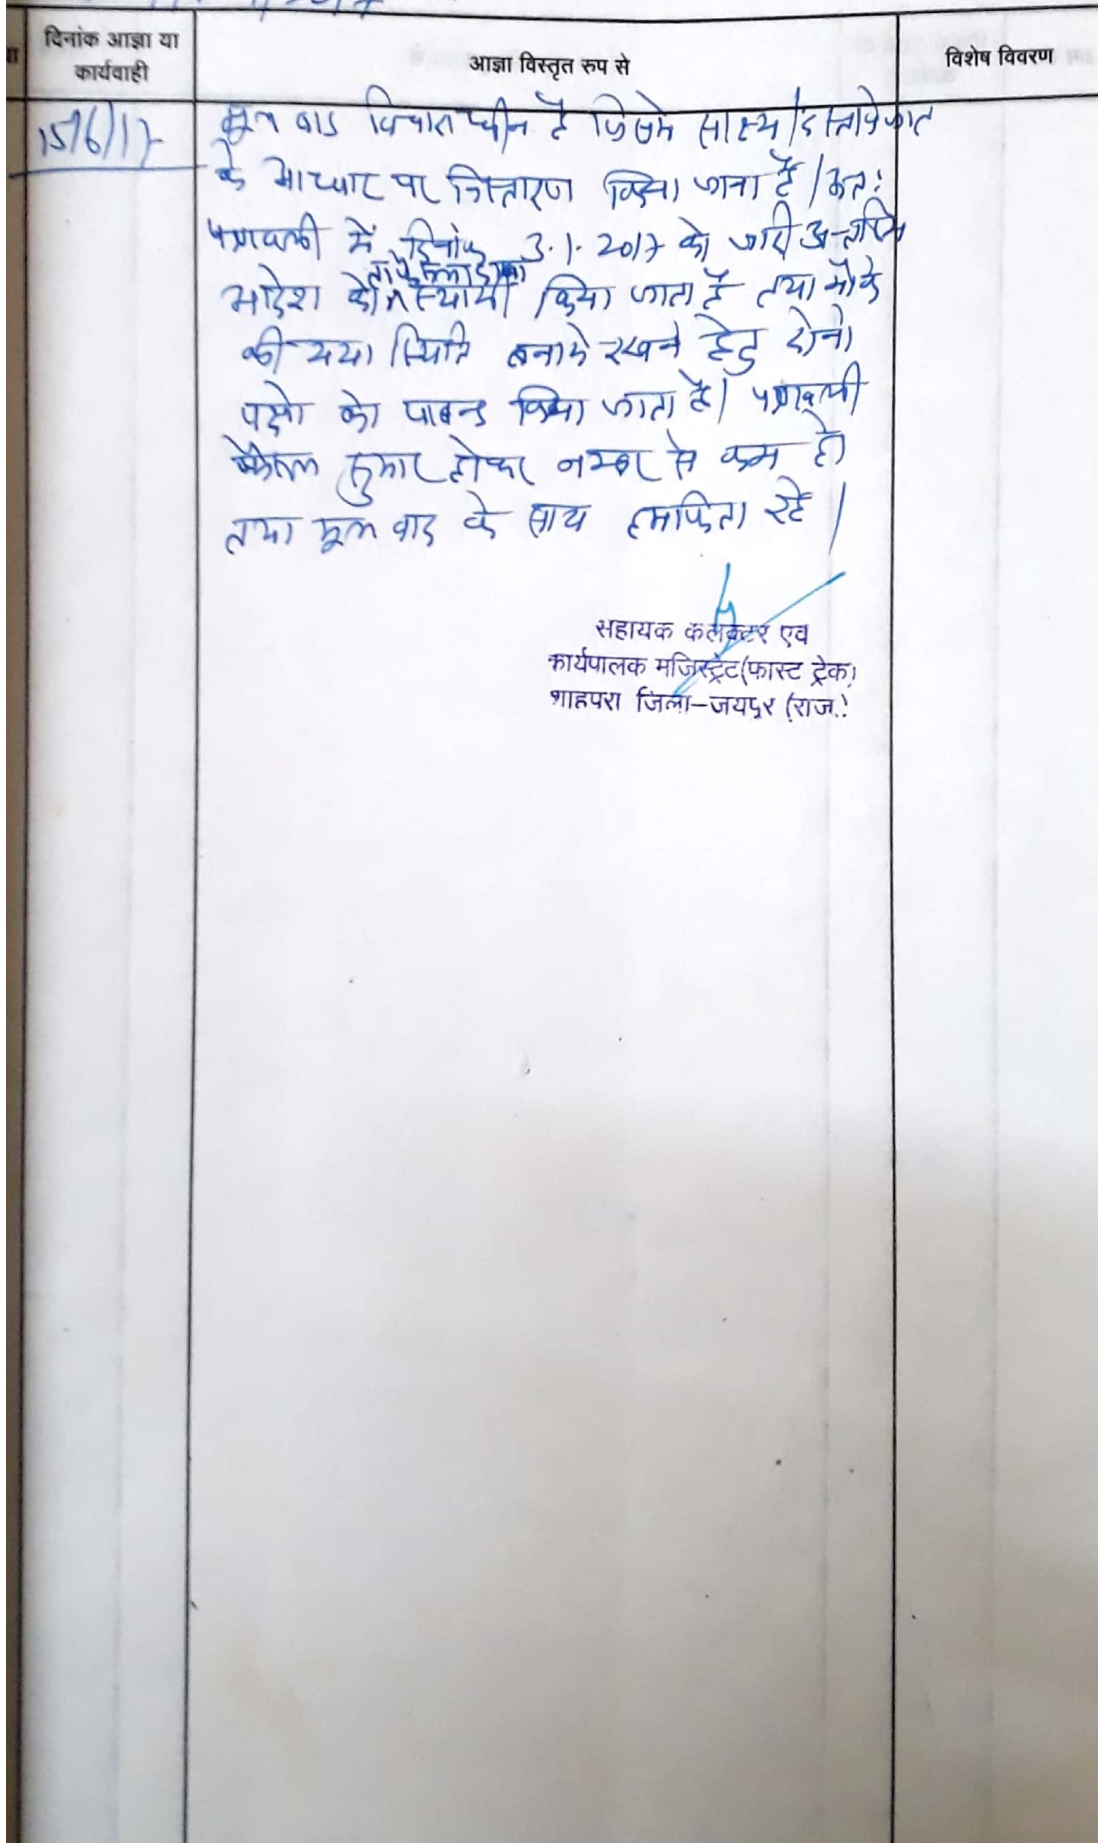 दिनांक आज्ञा या
कार्यवाही
आज्ञा विस्तृत रुप से
विशेष विवरण
15/6/17
मूल वाद विचाराधीन है जिसमे साक्ष्य/दस्तावेजात
के आधार पर निस्तारण किया जाना है। अतः
पत्रावली में दिनांक 3.1.2017 को जारी अन्तरिम
ता फैसला दावा
आदेश को स्थायी किया जाता है तथा मौके
की यथा स्थिति बनाये रखने हेतु दोनो
पक्षो को पाबन्द किया जाता है। पत्रावली
फैसल सुमार होकर नम्बर से कम हो
तथा मूल वाद के साथ हमफिता रहे।
सहायक कलेक्टर एव
कार्यपालक मजिस्ट्रेट(फास्ट ट्रेक)
शाहपरा जिला-जयपुर (राज.)